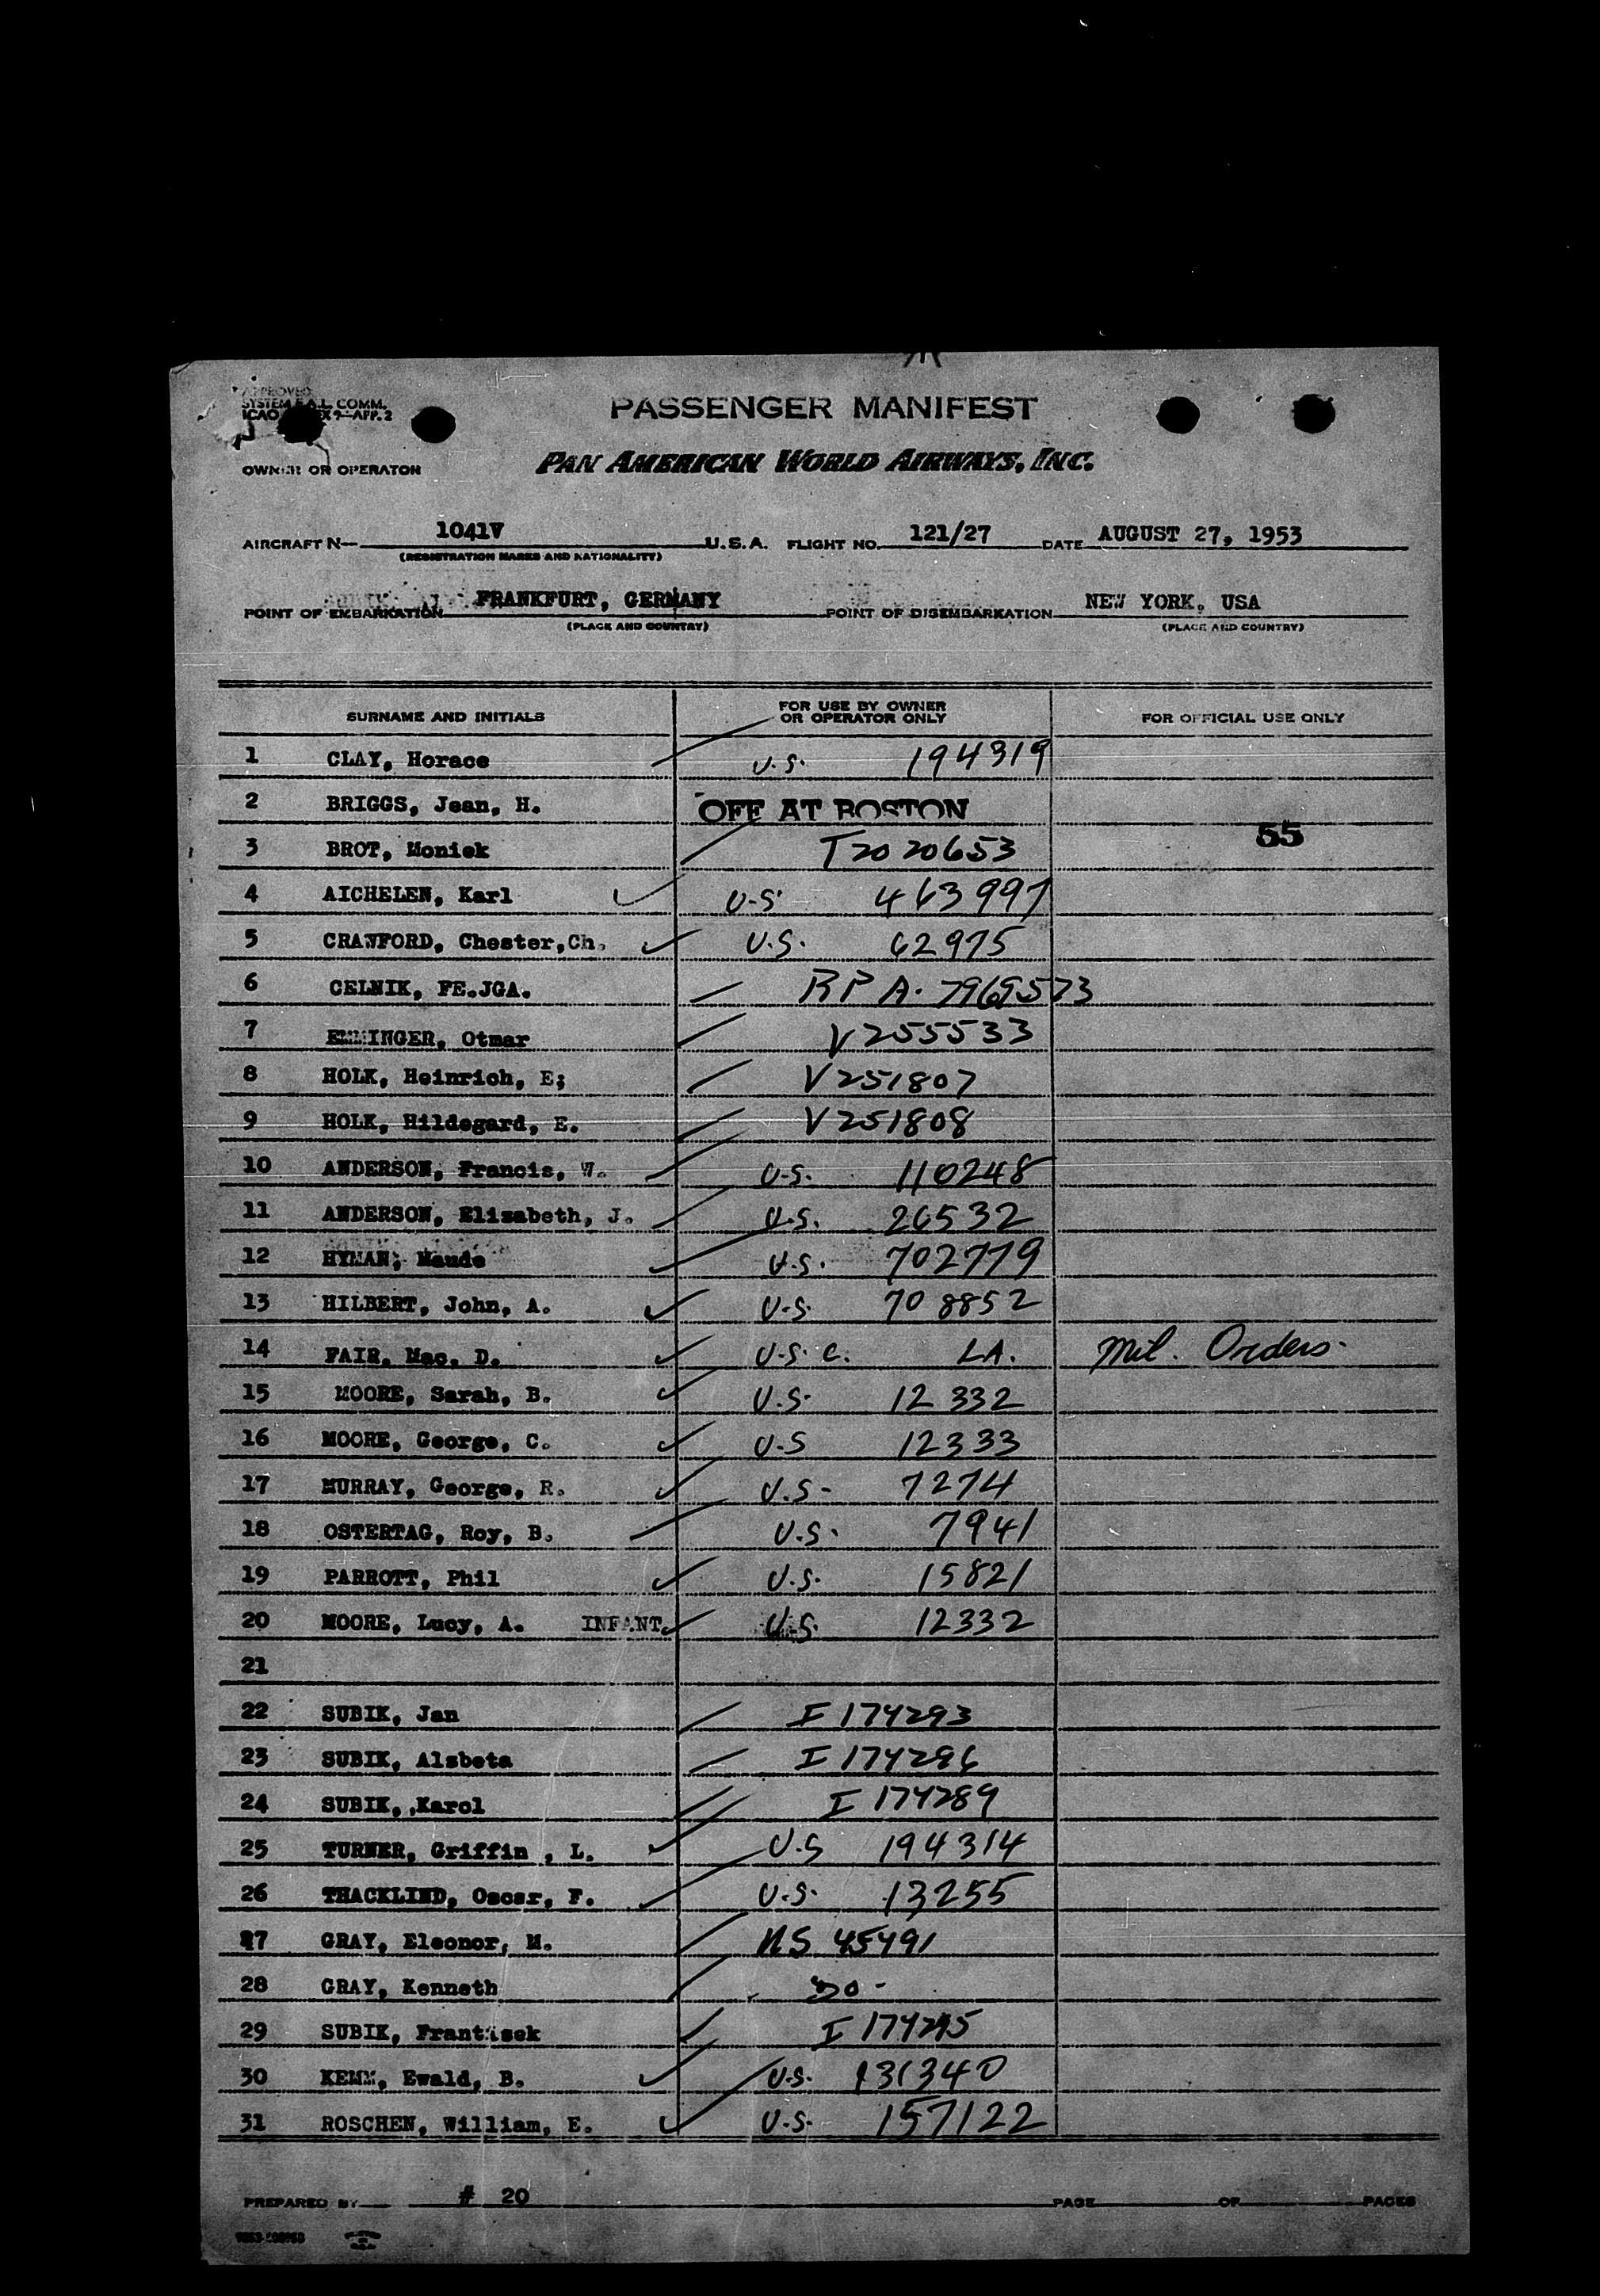 APPROVED
SYSTEM F.A.L. COMM.
ICAO 9—APP. 2
PASSENGER MANIFEST
OWNER OR OPERATOR PAN AMERICAN WORLD AIRWAYS, INC.
AIRCRAFT N— 1041V U.S.A. FLIGHT NO. 121/27 DATE AUGUST 27, 1953
(REGISTRATION MARKS AND NATIONALITY)
POINT OF EMBARKATION FRANKFURT, GERMANY POINT OF DISEMBARKATION NEW YORK, USA
(PLACE AND COUNTRY) (PLACE AND COUNTRY)
SURNAME AND INITIALS FOR USE BY OWNER OR OPERATOR ONLY FOR OFFICIAL USE ONLY
1 CLAY, Horace U.S. 194319
2 BRIGGS, Jean, H. OFF AT BOSTON
55
3 BROT, Moniek T2020653
4 AICHELEN, Karl U.S. 463997
5 CRAWFORD, Chester,Ch. U.S. 62975
6 CELNIK, FE.JGA. RP A. 7969573
7 EMMINGER, Otmar V255533
8 HOLK, Heinrich, E; V251807
9 HOLK, Hildegard, E. V251808
10 ANDERSON, Francis, W. U.S. 110248
11 ANDERSON, Elizabeth, J. U.S. 26532
12 HYMAN, Maude U.S. 702779
13 HILBERT, John, A. U.S. 708852
14 FAIR, Mac. D. U.S. C. LA. Mil. Orders.
15 MOORE, Sarah, B. U.S. 12332
16 MOORE, George, C. U.S 12333
17 MURRAY, George, R. U.S. 7274
18 OSTERTAG, Roy, B. U.S. 7941
19 PARROTT, Phil U.S. 15821
20 MOORE, Lucy, A. INFANT U.S. 12332
21
22 SUBIK, Jan I 174293
23 SUBIK, Alzbeta I 174296
24 SUBIK, ,Karol I 174289
25 TURNER, Griffin , L. U.S 194314
26 THACKLIND, Oscar, F. U.S. 13255
27 GRAY, Eleonor, M. NS 45491
28 GRAY, Kenneth DO -
29 SUBIK, Frantisek I 174295
30 KEMM, Ewald, B. U.S. 131340
31 ROSCHEN, William, E. U.S. 157122
PREPARED BY # 20 PAGE OF PAGES